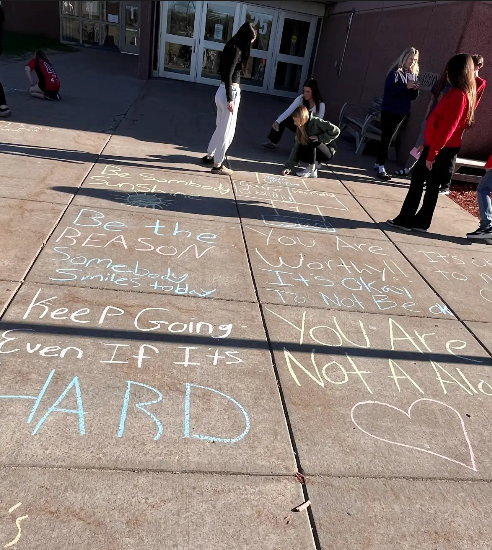 Be Somebody
Sunshine
Be the
REASON
Somebody
Smiles today
Keep Going
Even If Its
HARD
You Are
Worthy!!
It's Okay
To Not Be ok
You Are
Not A Alo
It's O
to n